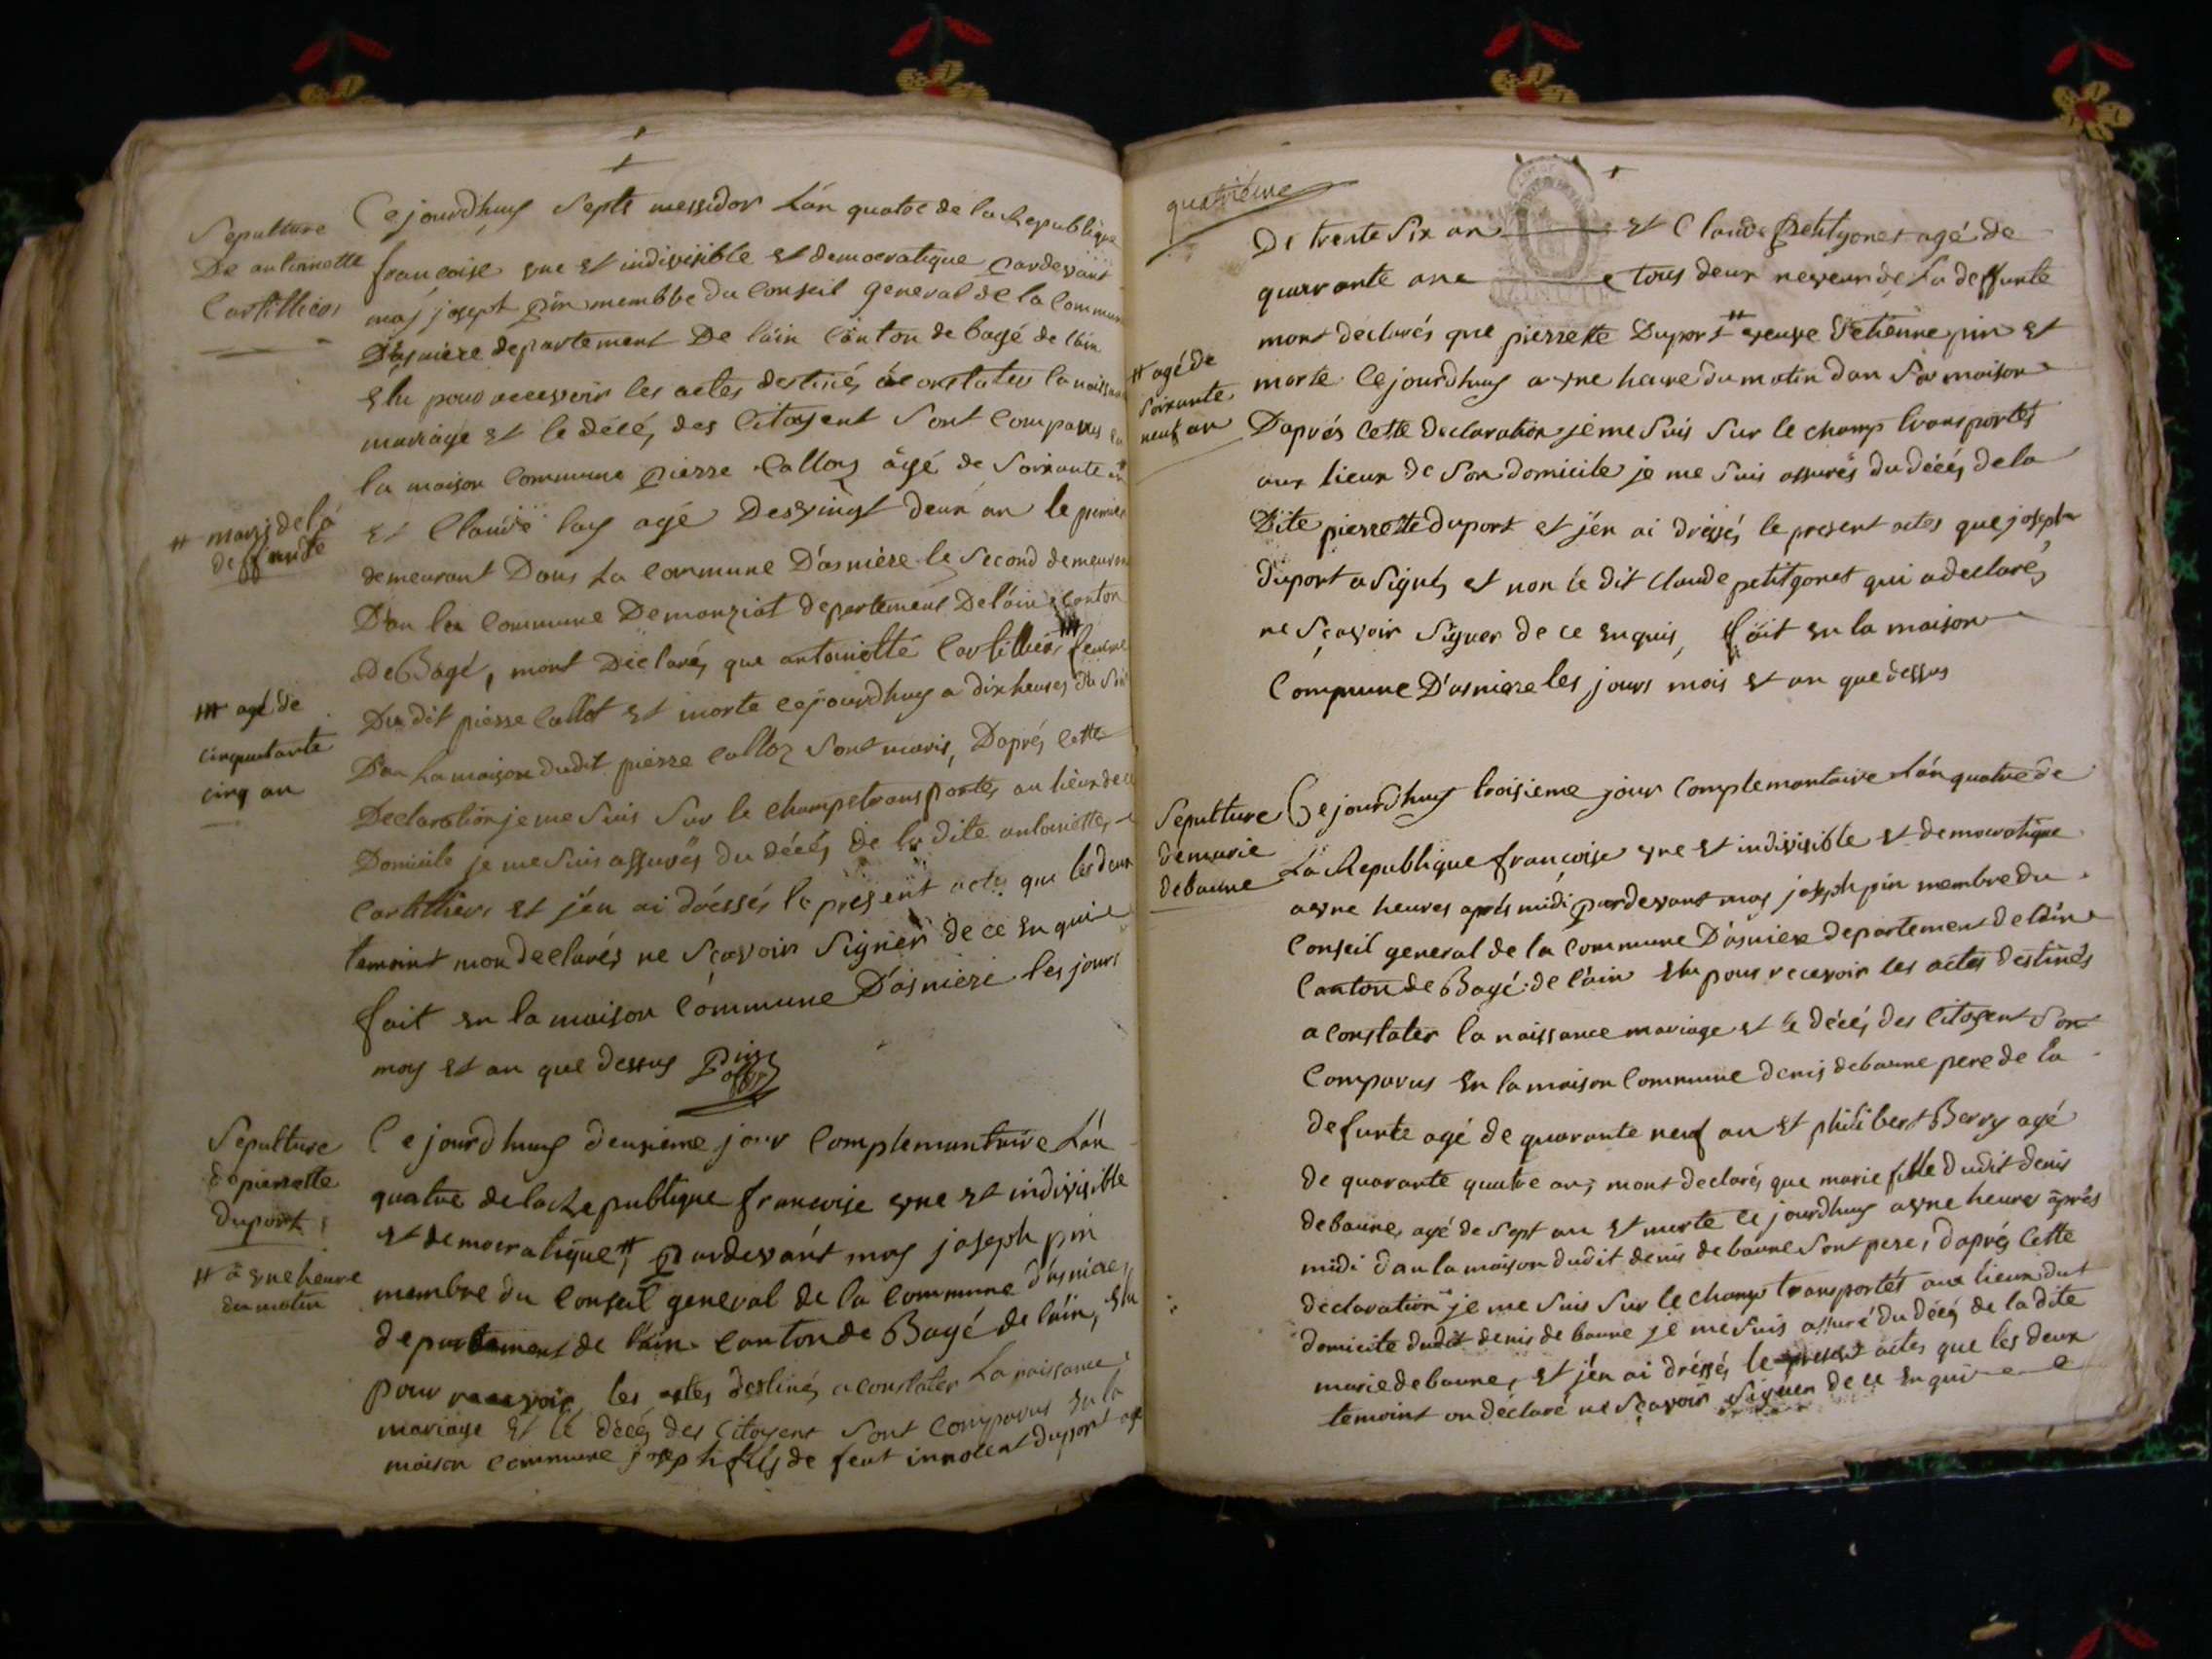 Sepulture
De antoinette
Cartillier
Ce jourdhuy Septs messidor L'án quatre de la Republique
françoise vne et indivisible et democratique pardevant
moy josept pin membbre du Conseil general de la Commun
D'asniere departement De l'áin Cánton de bagé de l'áin
Elu pour recevoir les actes destinés a constater la naissan
mariage et le décé, des Citoyent Sont Comparus
la maison Commune pierre Calloz âgé de Soixante
# mary de la
deffunte
et Claude lay agé Desvingt deux an le premier
demeurant Dans La Commune D'asniere le Second demeuran
Dan la Commune Demanziat departement De l'áin Canton
de Bagé, mont Déclaré, que antoinette Cartillier ### femme
### agé de
cinquantante
cinq an
Du dit pierre Callot Et morte cejourdhuy a dix heures du Soir
Dan La maison dudit pierre Calloz Sont maris, D'aprés cette
Declaration je me Suis Sur le champs transportés au lieux de
Domicile je me suis assurés du décés de la dite antoinette
Cartillier et j'én ai dréssés le présent actes que les deux
temoint mon declarés ne Sçavoir Signér de ce Enquie
fait en la maison Commune D'ásniere les jours
moy et an que dessus Pin
off
Sepulture
de pierrette
duport
Ce jourdhuy deuxieme jour Complemantaire L'án
quatre de la Republique françoise vne et indivisible
et democratique # pardevánt moy joseph pin
# à vne heure
du matin
membre du Conseil general de la Commune d'asniere,
departement de l'áin Canton de Bagé de l'áin, Elu
pour recevoir les actes destinés a constater La naissance
mariage et le décés des Citoyens Sont Comparus en la
maison Commune joseph fils de feut innocent duport agé
quatrième
De trente Six an et Claude petitgonet agé de
quarante ane tous deux neveux de La deffunte
mont déclarés que pierrette Duport # veuve d'etienne pin et
# agé de
Soixante
neuf an
morte Cejourdhuy a vne heure du matin dan Sa maison
D'aprés Cette declaration je me Suis Sur le champ transportés
aux lieux de Son domicile je me Suis assurés du décés de la
Dite pierrette duport et j'én ai dréssés le present actes que joseph
duport a Signés et non le dit Claude petitgonet qui a declarés
ne Sçavoir Signer de ce Enquis, fait en la maison
Commune D'asniere les jours mois et an que dessus
Sepulture
de marie
debanne
Ce jourdhuy troisieme jour Complemantaire L'án quatre de
La Republique françoise vne et indivisible et democratique
a vne heures aprés midi pardevant moy joseph pin membre du
Conseil general de la Commune D'asniere departement de l'áin
Canton de Bagé de l'áin Elu pour recevoir les actes déstinés
a constater la naissance mariage et le décés, des Citoyent Son
Comparus En la maison Commune denis debanne pere de la
defunte agé de quarante neuf an et philibert Berry agé
de quarante quatre an, mont declarés que marie fille dudit denis
debanne, agé de Sept an et morte ce jourdhuy a vne heures àprés
midi dan la maison dudit denis de banne Sont pere, d'aprés Cette
declaration je me Suis Sur le champ transportés aux lieux du
domicile dudit denis de banne je me suis assuré du décés de la dite
marie debanne, et j'én ai dréssés le present actes que les deux
temoint on déclaré ne Sçavoir Signer de ce Enquie